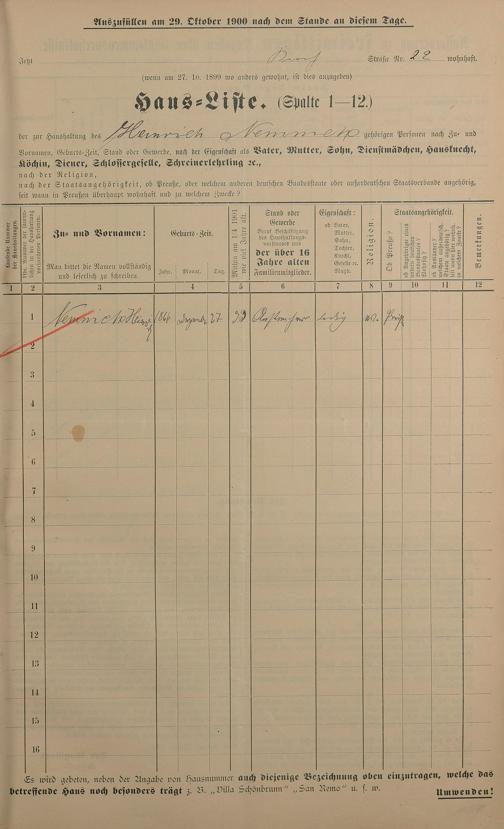 Auszufüllen am 29. Oktober 1900 nach dem Stande an diesem Tage.
Jetzt Straße Nr. 22 wohnhaft.
(wenn am 27. 10. 1899 wo anders gewohnt, ist dies anzugeben)
Haus-Liste. (Spalte 1—12.)
der zur Haushaltung des Heinrich Nemnich gehörigen Personen nach Zu- und
Vornamen, Geburts-Zeit, Stand oder Gewerbe, nach der Eigenschaft als Vater, Mutter, Sohn, Dienstmädchen, Hausknecht,
Köchin, Diener, Schlossergeselle, Schreinerlehrling ec.,
nach der Religion,
nach der Staatsangehörigkeit, ob Preuße, oder welchem anderen deutschen Bundesstaate oder außerdeutschen Staatsverbande angehörig,
seit wann in Preußen überhaupt wohnhaft und zu welchem Zwecke?
Zu- und Vornamen:
Man bittet die Namen vollständig
und leserlich zu schreiben.
Geburts-Zeit.
Jahr. Monat. Tag.
Stand oder
Gewerbe
der über 16
Jahre alten
Familienmitglieder.
Eigenschaft:
ob Vater,
Mutter,
Sohn,
Tochter,
Knecht,
Geselle
Magd.
Religion.
Staatsangehörigkeit.
Ob Preuße?
Bemerkungen.
1 2 3 4 5 6 7 8 9 10 11 12
1 Nemnich Heinr. 1864 Dezember 27 ledig
2
3
4
5
6
7
8
9
10
11
12
13
14
15
16
Es wird gebeten, neben der Angabe von Hausnummer auch diejenige Bezeichnung oben einzutragen, welche das
betreffende Haus noch besonders trägt z. B. „Villa Schönbrunn" „San Remo" u. s. w. Umwenden!